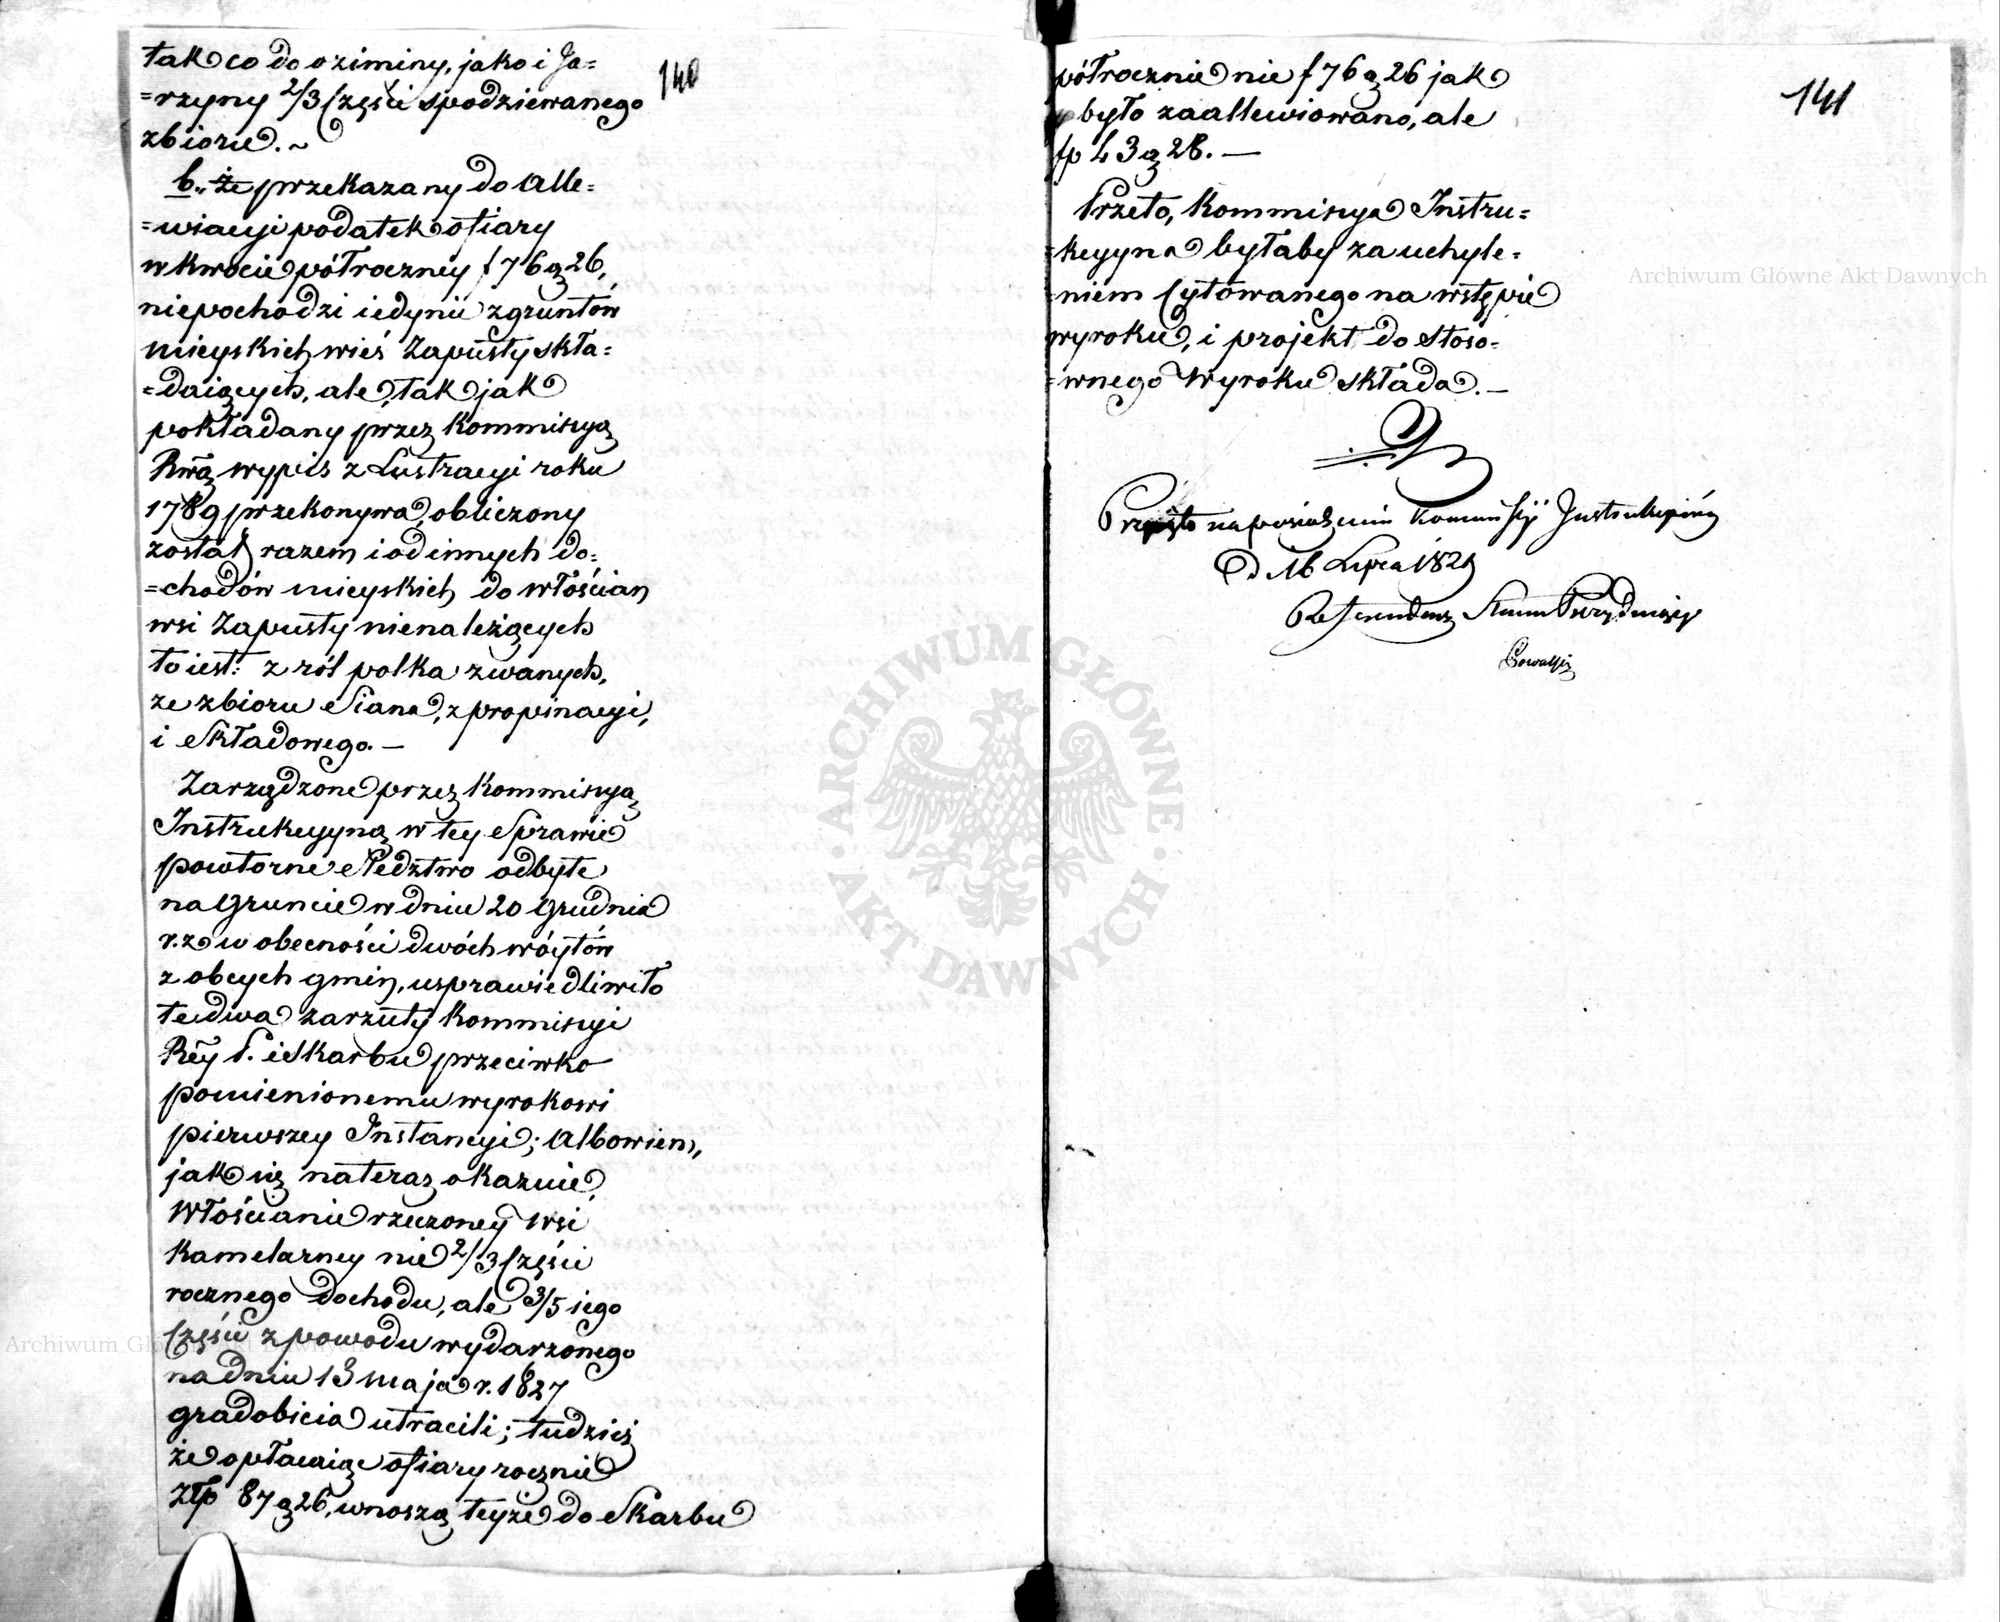 140
tak co do oziminy, jako i Ja=
=rzyny 2/3 Części spodziewanego
zbioru. ~
b., że przekazany do Alle=
=wiacyi podatek ofiary
w kwocie półroczney f 76 g 26,
niepochodzi iedynie z gruntów
mieyskich wieś Zapusty skła=
=daiących, ale, tak jak
pokładany przez Kommissyą
Rwą wypis z Lustracyi roku
1789 przekonywa, obliczony
został razem i od innych do=
=chodów mieyskich do włościan
wsi Zapusty nienależących
to iest: z ról polka zwanych,
ze zbioru Siana, z propinacyi,
i Składowego. —
Zarządzone przez Kommissyą
Instrukcyyną w tey Sprawie
powtorne Sledztwo odbyte
na Gruncie w dniu 20 Grudnia
r.z. w obecności dwóch wóytów
z obcych gmin, usprawiedliwiło
te dwa zarzuty Kommissyi
Rey P. i Skarbu przeciwko
pomienionemu wyrokowi
pierwszey Instancyi; Albowiem,
jak się na teraz okazuie,
Włościanie rzeczoney wsi
Kamelarney nie 2/3 Części
rocznego dochodu, ale 3/5 iego
Części z powodu wydarzonego
na dniu 13 maja r. 1827
gradobicia utracili; tudzież
że opłacaiąc ofiary rocznie
złp 87 g 26, wnoszą teyże do Skarbu
141
półrocznie nie f 76 g 26 jak
było zaallewiowano, ale
fp 43 g 28. —
Przeto, Kommissya Instru=
=kcyyna byłaby za uchyle=
=niem Cytowanego na wstępie
wyroku, i projekt do Stoso=
=wnego Wyroku składa. —
Przyięto na posiedzeniu Kommissyi Instrukcyiney
D. 16 Lipca 1829
Referendarz Stanu Prezyduiący
Archiwum Główne Akt Dawnych
Archiwum Główne Akt Dawnych
ARCHIWUM GŁÓWNE · AKT DAWNYCH ·